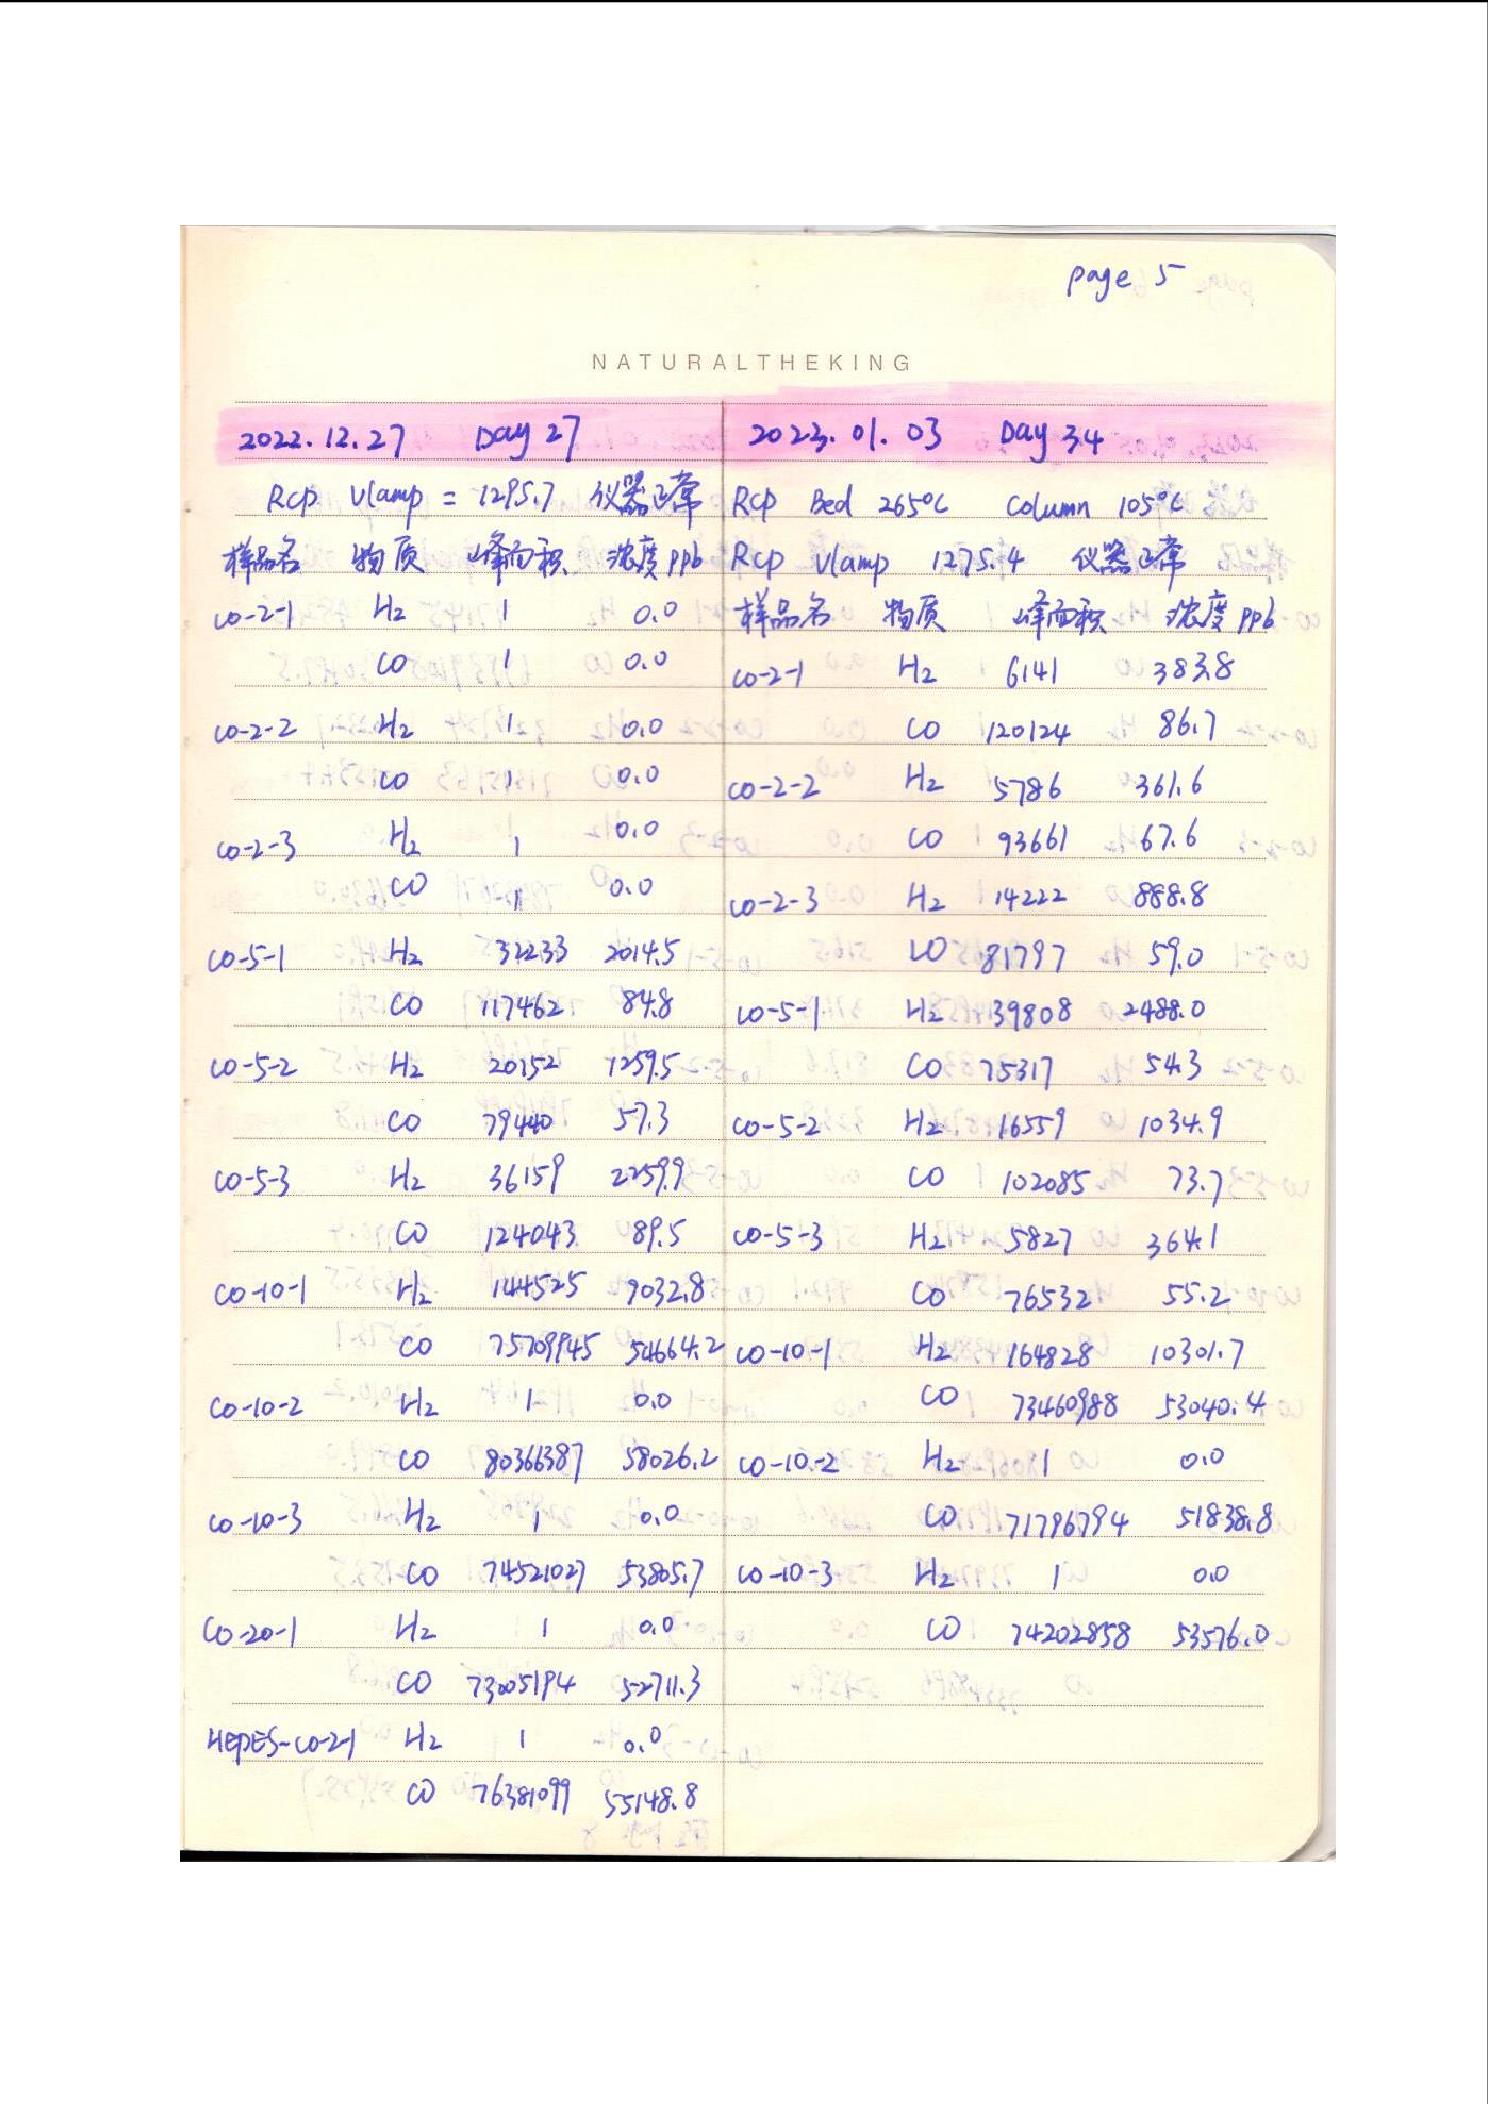 page 5
NATURALTHEKING
2022.12.27 Day 27
Rcp Vlamp = 1295.7 仪器正常
样品名 物质 峰面积 浓度ppb
CO-2-1 H2 1 0.0
CO 1 0.0
CO-2-2 H2 1 0.0
CO 1 0.0
CO-2-3 H2 1 0.0
CO 1 0.0
CO-5-1 H2 32233 2014.5
CO 117462 84.8
CO-5-2 H2 20152 1259.5
CO 79440 57.3
CO-5-3 H2 36159 2259.9
CO 124043 89.5
CO-10-1 H2 144525 9032.8
CO 75709945 54664.2
CO-10-2 H2 1 0.0
CO 80366387 58026.2
CO-10-3 H2 1 0.0
CO 74521027 53805.7
CO-20-1 H2 1 0.0
CO 73005194 52711.3
HEPES-CO-2-1 H2 1 0.0
CO 76381099 55148.8
2023.01.03 Day 34
Rcp Bed 265°C Column 105°C
Rcp Vlamp 1275.4 仪器正常
样品名 物质 峰面积 浓度ppb
CO-2-1 H2 6141 383.8
CO 120124 86.7
CO-2-2 H2 5786 361.6
CO 93661 67.6
CO-2-3 H2 14222 888.8
CO 81797 59.0
CO-5-1 H2 39808 2488.0
CO 75317 54.3
CO-5-2 H2 16559 1034.9
CO 102085 73.7
CO-5-3 H2 5827 364.1
CO 76532 55.2
CO-10-1 H2 164828 10301.7
CO 73460988 53040.4
CO-10-2 H2 1 0.0
CO 71796794 51838.8
CO-10-3 H2 1 0.0
CO 74202858 53576.0